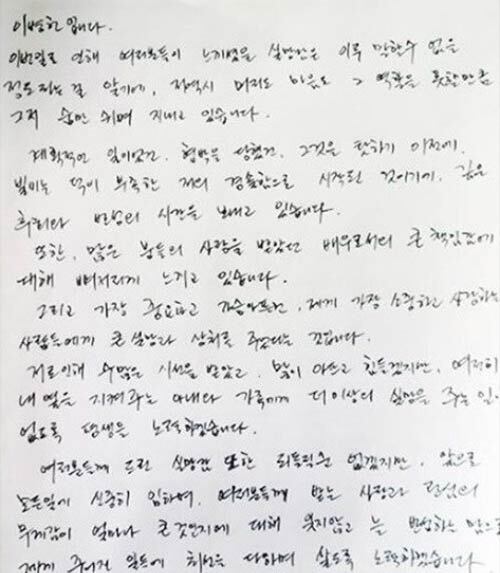 이병헌 입니다.
이번일로 인해 여러분들이 느끼셨을 실망감은 이루 말할수 없을
정도라는걸 알기에, 저역시 머리도 마음도 그 역할을 못할만큼
그저 숨만 쉬며 지내고 있습니다.
계획적인 일이었건, 협박을 당했건, 그것을 탓하기 이전에,
빌미는 덕이 부족한 저의 경솔함으로 시작된 것이기에, 깊은
후회와 반성의 시간을 보내고 있습니다.
또한, 많은 분들의 사랑을 받았던 배우로서의 큰 책임감에
대해 뼈저리게 느끼고 있습니다.
그리고 가장 중요하고 가슴아프건, 제게 가장 소중하고 사랑하는
사람들에게 큰 실망과 상처를 주었다는 것입니다.
저로인해 수많은 시선을 받았고, 많이 아프고 힘든겠지만, 여전히
내 옆을 지켜주는 아내와 가족에게 더이상의 실망을 주는 일이
없도록 평생을 노력하겠습니다.
여러분들께 드린 실망감 또한 되돌릴순 없겠지만, 앞으로
모든일에 신중히 임하며, 여러분들께 받는 사랑과 관심의
무게감이 얼마나 큰것인지에 대해 잊지않고 늘 반성하는 맘으로
제게 주어진 일들에 최선을 다하며 살도록 노력하겠습니다